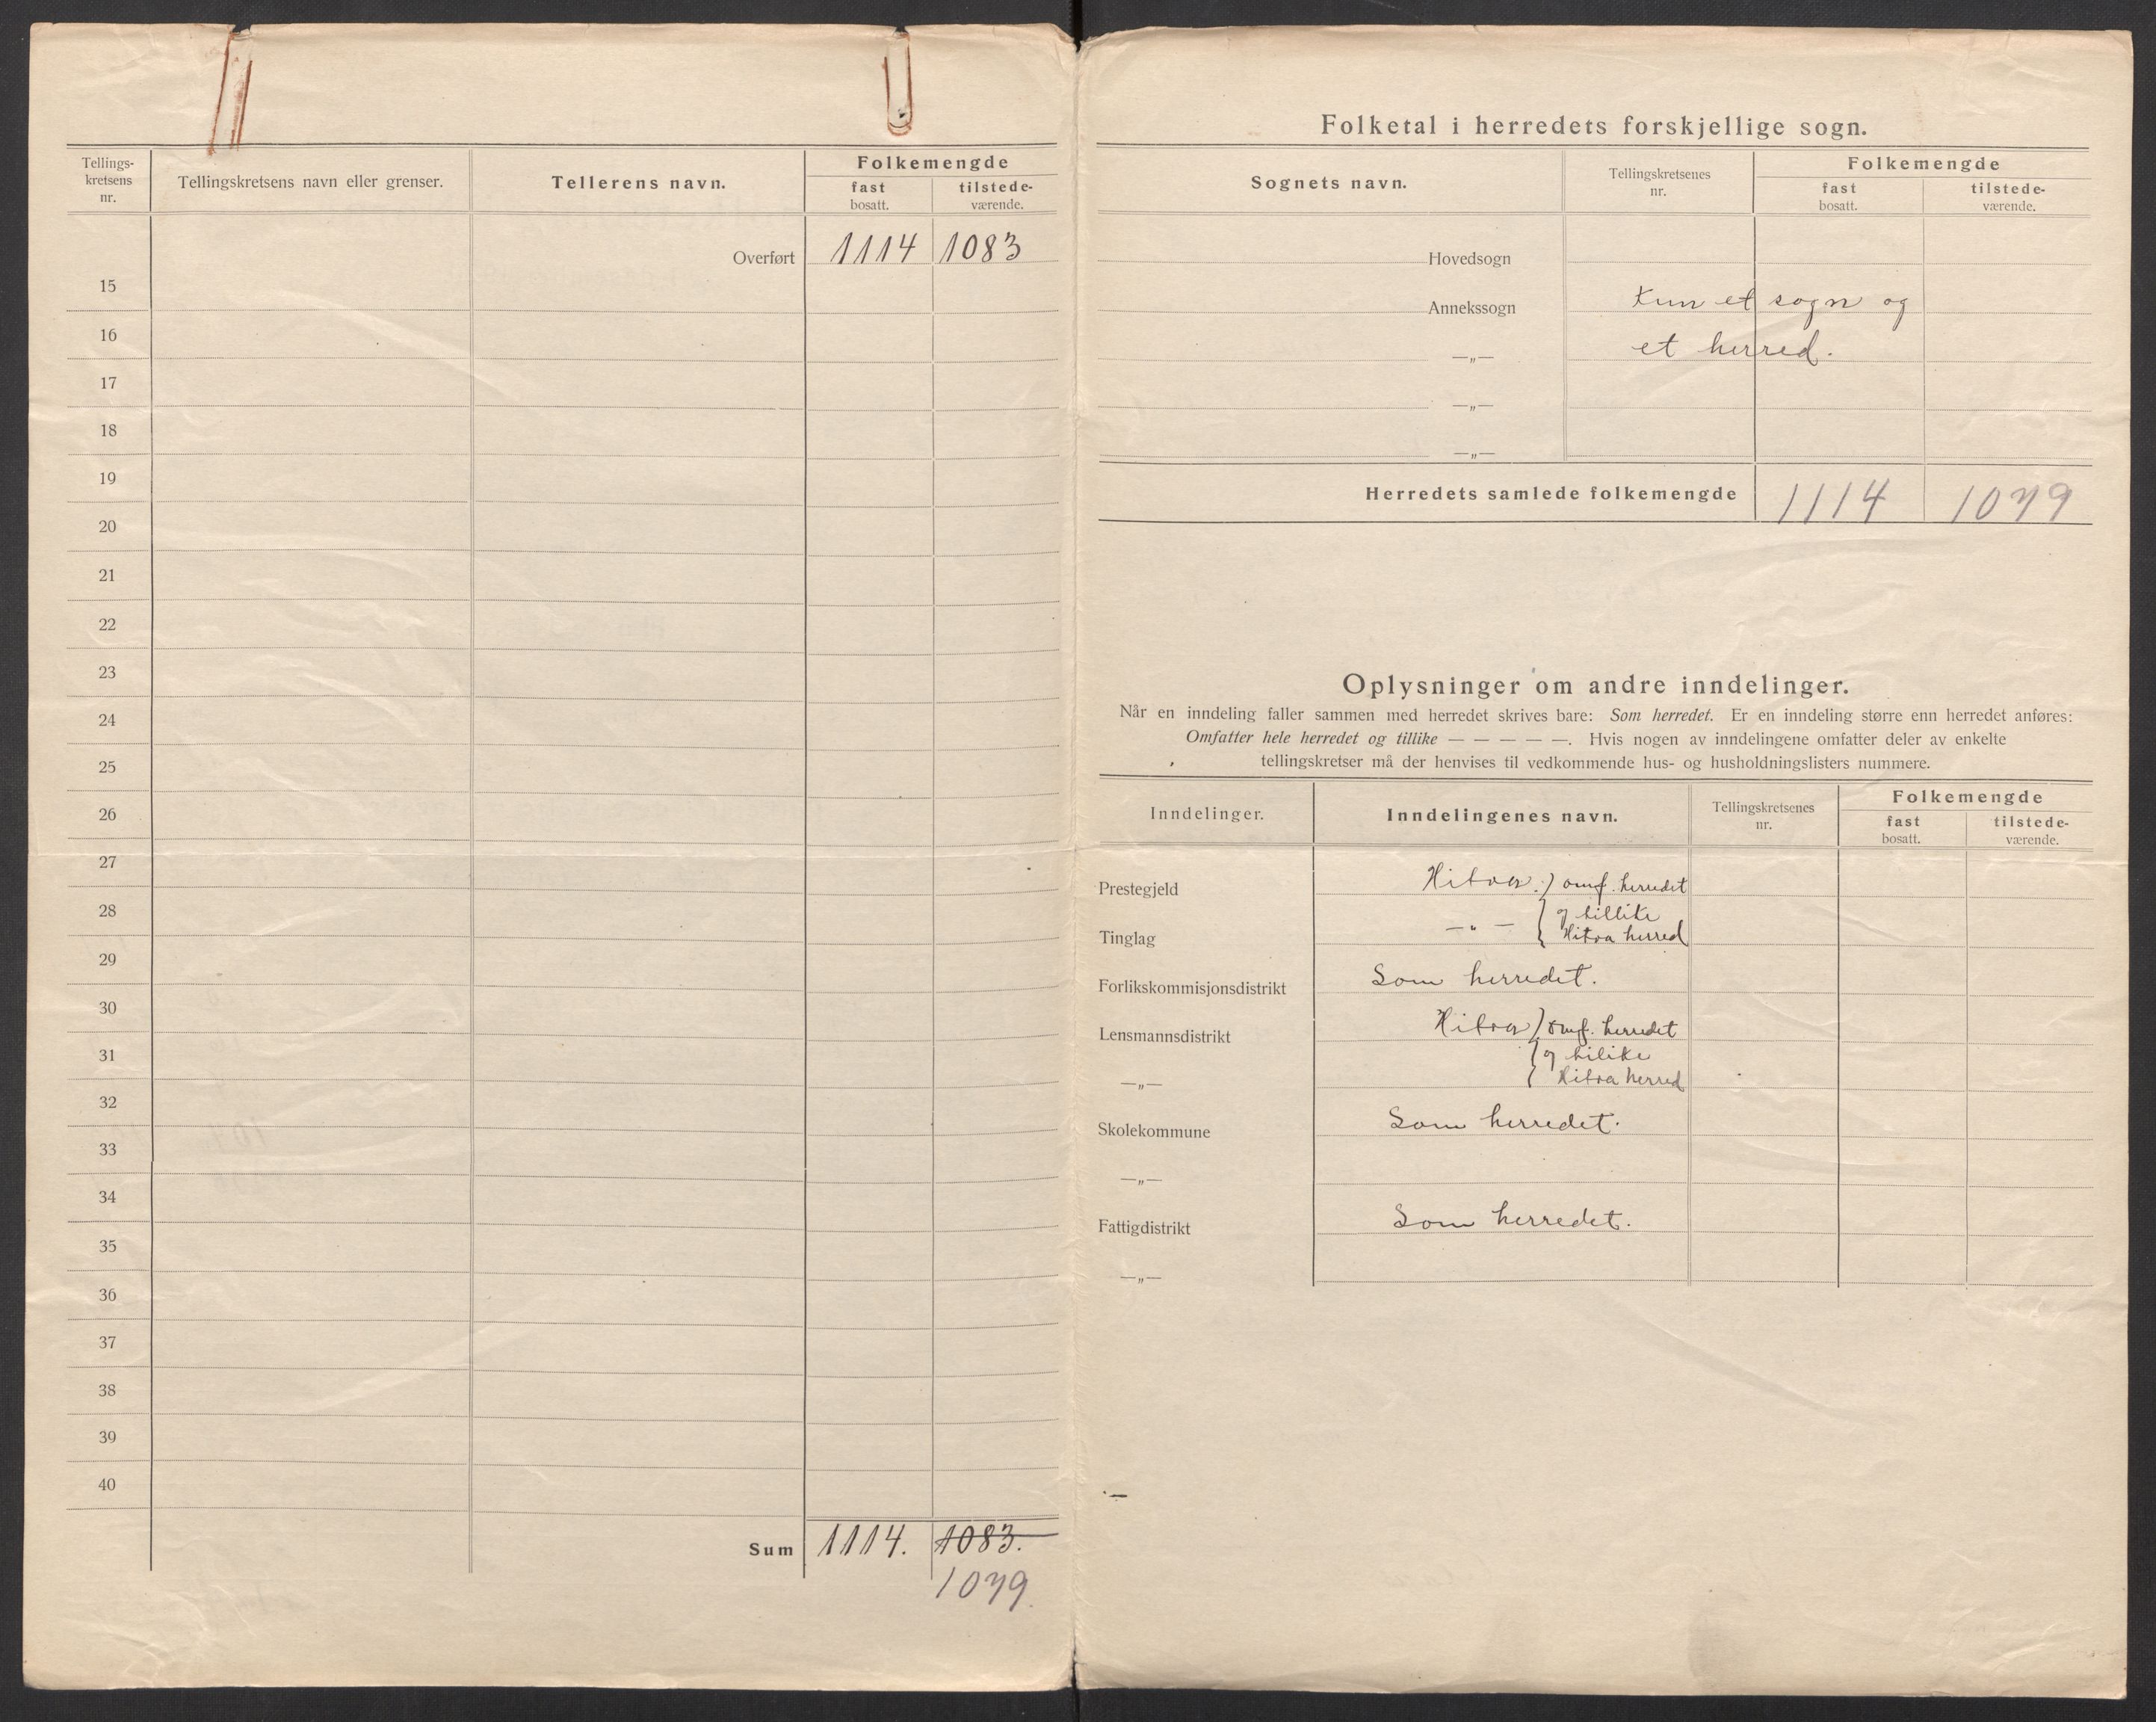 Tellings-
kretsens
nr.
Tellingskretsens navn eller grenser.
Tellerens navn.
Folkemengde
fast
bosatt.
tilstede-
værende.
Overført 1114 1083
15
16
17
18
19
20
21
22
23
24
25
26
27
28
29
30
31
32
33
34
35
36
37
38
39
40
Sum 1114. 1083.
1079.
Folketal i herredets forskjellige sogn.
Sognets navn.
Tellingskretsenes
nr.
Folkemengde
fast
bosatt.
tilstede-
værende.
Hovedsogn
Annekssogn Kun et sogn og
—„— et herred.
—„—
—„—
Herredets samlede folkemengde 1114 1079
Oplysninger om andre inndelinger.
Når en inndeling faller sammen med herredet skrives bare: Som herredet. Er en inndeling større enn herredet anføres:
Omfatter hele herredet og tillike — — — — —. Hvis nogen av inndelingene omfatter deler av enkelte
tellingskretser må der henvises til vedkommende hus- og husholdningslisters nummere.
Inndelinger.
Inndelingenes navn.
Tellingskretsenes
nr.
Folkemengde
fast
bosatt.
tilstede-
værende.
Prestegjeld Hitra. } omf. herredet
og tillike
Tinglag —„— Hitra herred
Forlikskommisjonsdistrikt Som herredet.
Lensmannsdistrikt Hitra } omf. herredet
og tilike
—„— Hitra herred
Skolekommune Som herredet.
—„—
Fattigdistrikt Som herredet.
—„—